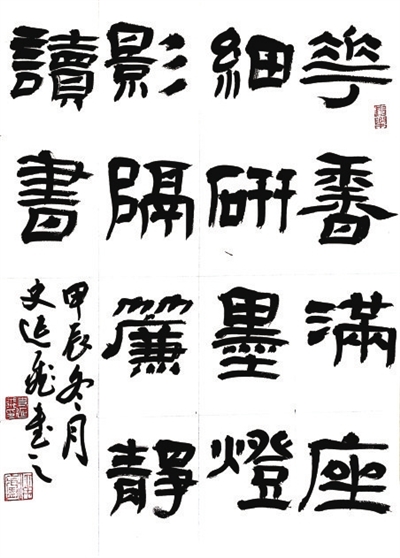 華香滿座
細研墨燈
影隔簾靜
讀書
甲辰冬月
史延書之